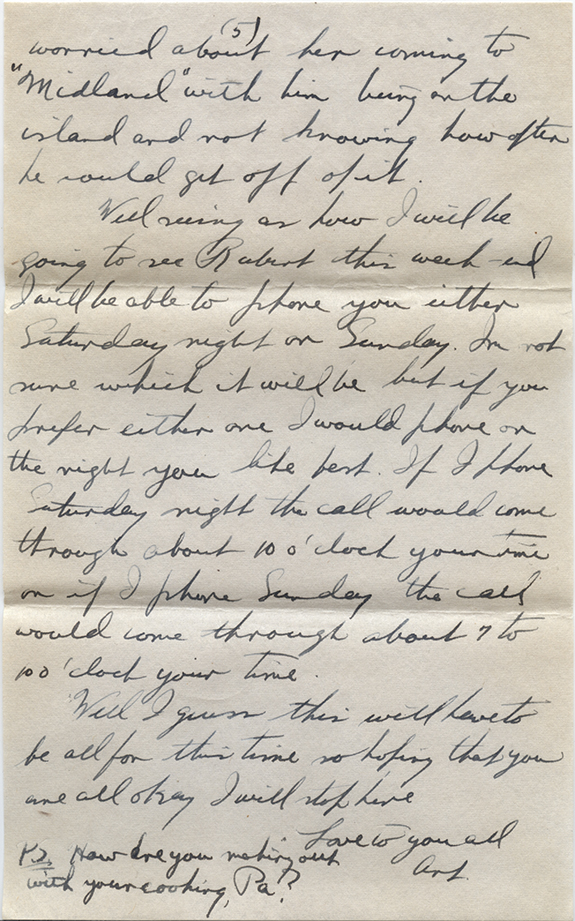 (5)
worried about her coming to
"Midland" with him being on the
island and not knowing how often
he could get off of it.
Well seeing as how I will be
going to see Robert this week-end
I will be able to phone you either
Saturday night or Sunday. Im not
sure which it will be but if you
prefer either one I would phone on
the night you like best. If I phone
Saturday night the call would come
through about 10 o'clock your time
or if I phone Sunday the call
would come through about 7 to
10 o'clock your time.
Well I guess this will have to
be all for this time so hoping that you
are all okay I will stop here
Love to you all
Art.
P.S. How are you making out
with your cooking, Pa?